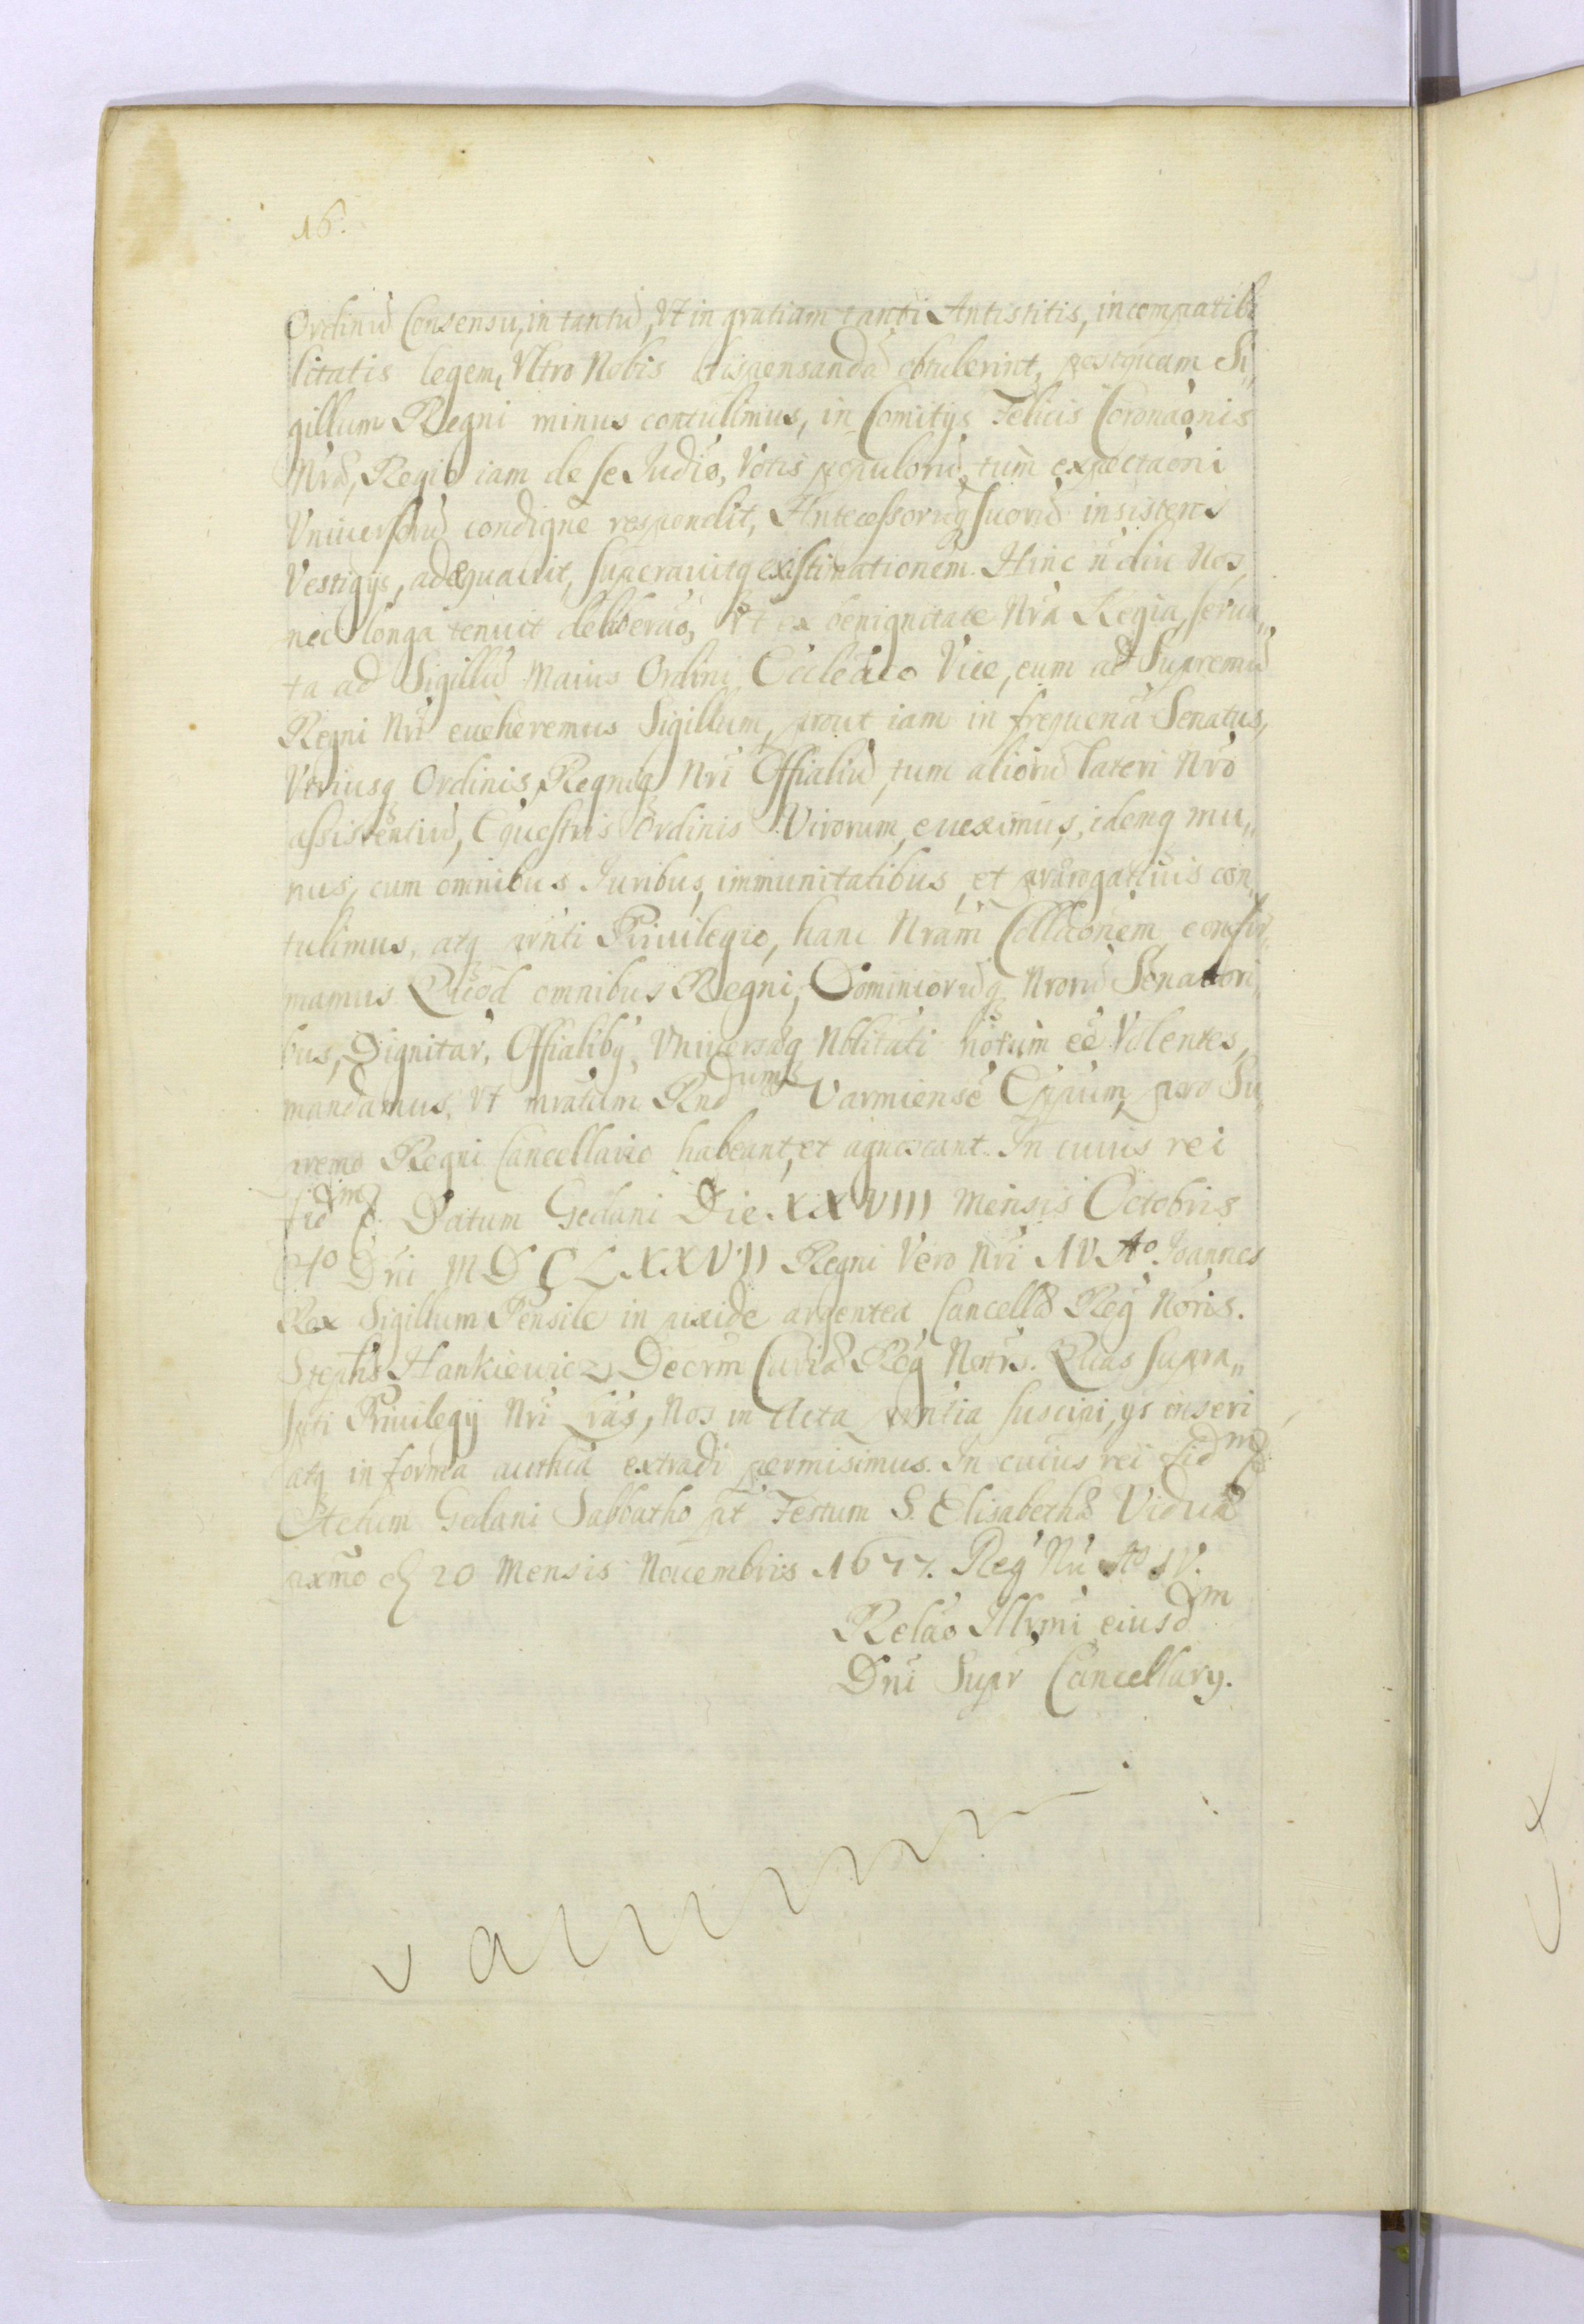 16.
Ordinū Consensu, in tantū, Vt in gratiam tanti Antistitis, incompatibi
litatis legem, Vltro Nobis dispensandā obtulerint, postquam Si„
gillum Regni minus contulimus, in Comitÿs Felicis Coronaōnis
Nræ, Regio iam de se Iudīo, Votis populorū, tum expectaōni
Vniuersorū condigne respondit, Antecessorūq Suorū insistens
Vestigÿs, adæquauit, superauitq existimationem. Hinc n̄ diu Nos,
nec longa tenuit deliberaō, Vt ex benignitate Nrā Regia, serua„
ta ad Sigillū Maius Ordini Ecclēaco Vice, eum ad Supremū
Regni Nrī eueheremus Sigillum, prout iam in frequenā Senatus,
Vtriusq Ordinis, Regniq Nrī Offialiū, tum aliorū lateri Nrō
assistentiū, Equestris Ordinis Virorum, eueximus, idemq mu„
nus, cum omnibus Iuribus, immunitatibus, et prærogatiuis con„
tulimus, atq prn̄ti Priuilegio, hanc Nram̄ Collaōnem confir„
mamus. Quod omnibus Regni, Dominiorūq Nrorū Senatori„
bus, Dignitar, Offialibꝰ, Vniuersæq Nblitati notum ēe Volentes,
mandamus, Vt mratum Rnd dum Varmiensē Eppum, pro Su„
premo Regni Cancellario habeant, et agnoscant. In cuius rei
fid m p. Datum Gedani Die XXVIII Mensis Octobris
Ao Dni MDCLXXVII Regni Vero Nrī IV Ao. Ioannes
Rex Sigillum Pensile in pixide argentea Cancellæ Reg Noris.
Stephs Hankiewicz Decrm Curiæ Reg Notrs. Quas Supra„
spti Priuilegÿ Nrī Lrās, Nos in Acta prn̄tia suscipi, ÿs inseri
atq in forma authca extradi permisimus. In cuius rei fid m p.
Actum Gedani Sabbatho pt Festum S. Elisabethæ Viduæ
pxmo 20 Mensis Nouembris 1677. Reg Nrī Ao IV.
Relāo Illrmi eiusd m
Dni Supr Cancellarÿ.